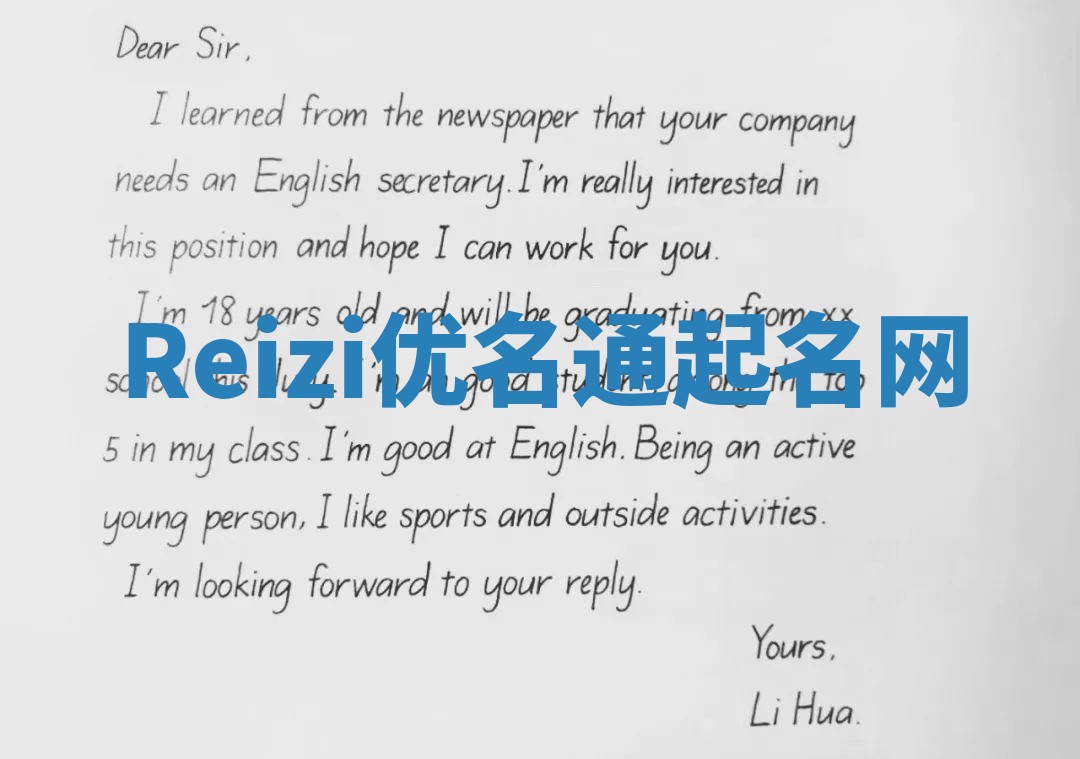 Dear Sir,
I learned from the newspaper that your company
needs an English secretary. I'm really interested in
this position and hope I can work for you.
I'm 18 years old and will be graduating from xx
Reizi优名通起名网
school this July. I'm good student among the top
5 in my class. I'm good at English. Being an active
young person, I like sports and outside activities.
I'm looking forward to your reply.
Yours,
Li Hua.